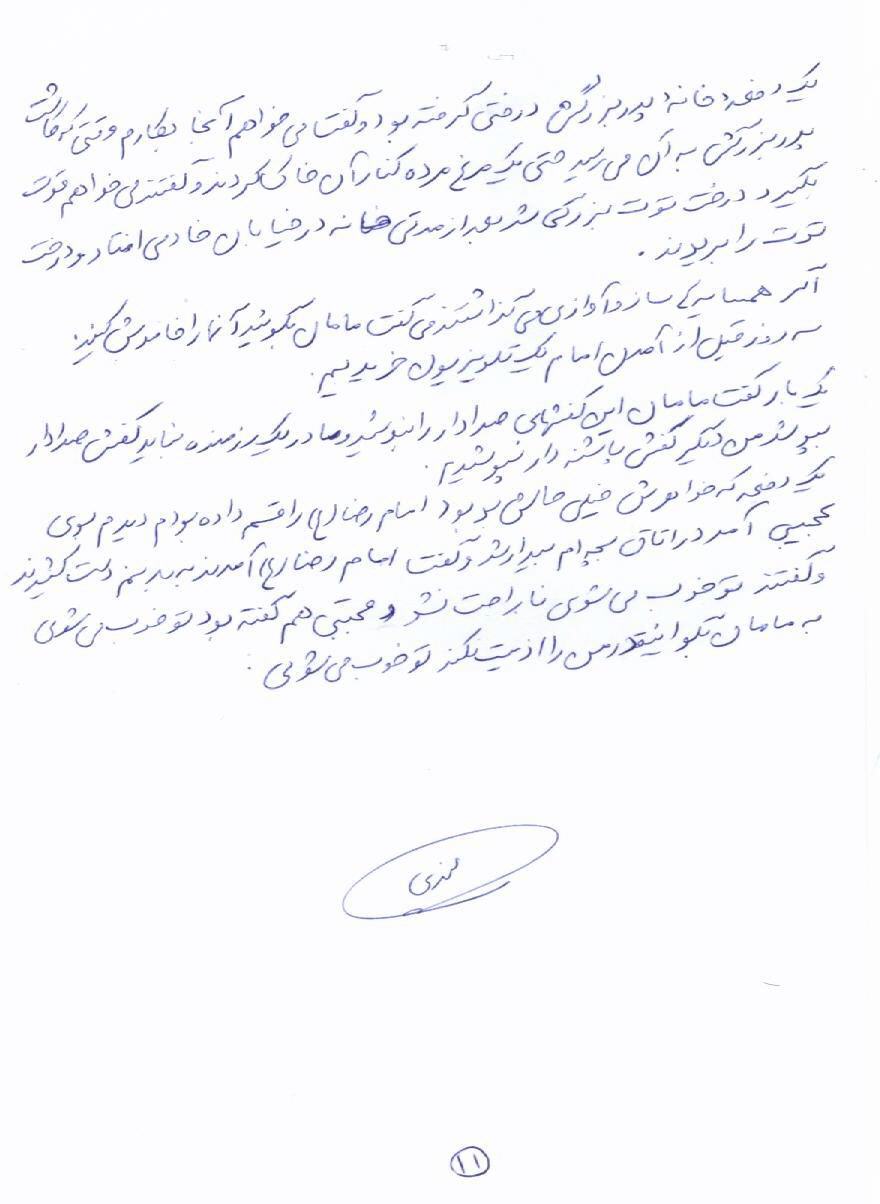 یک دفعه خانه پدربزرگش درختی گرفته بود و گفت می خواهم آنجا بکارم وقتی که کاشت
پدربزرگش به آن می رسید حتی یک مرغ مرده کنار آن خاک کردند و گفتند می خواهم قوت
بگیرد درخت توت بزرگی شد بعد از مدتی خانه در خیابان خادمی افتاد و درخت
توت را بریدند .
اگر همسایه ساز و آوازی می گذاشتند می گفت مامان بگوئید آنها را خاموش کنید.
سه روز قبل از آمدن امام یک تلویزیون خریدیم.
یک بار گفت مامان این کفشهای صدادار را نپوشید و مادر یک رزمنده نباید کفش صدادار
بپوشد من دیگر کفش پاشنه دار نپوشیدم.
یک دفعه که خواهرش خیلی حالش بد بود امام رضا (ع) را قسم داده بودم دیدم بوی
عجیبی آمد در اتاق بچه ام بیدار شد و گفت امام رضا (ع) آمدند به بدنم دست کشیدند
و گفتند تو خوب می شوی ناراحت نشو و مجتبی هم گفته بود تو خوب می شوی
به مامان بگو اینقدر من را اذیت نکند تو خوب می شوی .
۱۱